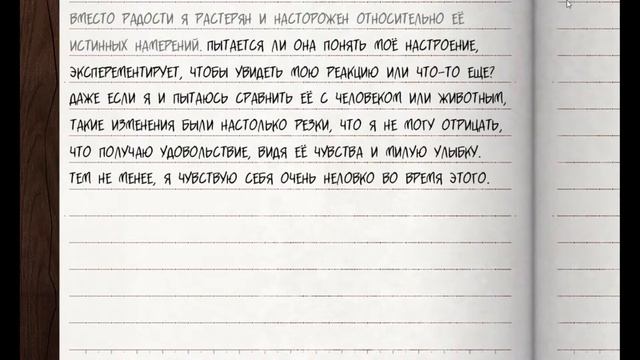 ВМЕСТО РАДОСТИ Я РАСТЕРЯН И НАСТОРОЖЕН ОТНОСИТЕЛЬНО ЕЁ
ИСТИННЫХ НАМЕРЕНИЙ. ПЫТАЕТСЯ ЛИ ОНА ПОНЯТЬ МОЁ НАСТРОЕНИЕ,
ЭКСПЕРЕМЕНТИРУЕТ, ЧТОБЫ УВИДЕТЬ МОЮ РЕАКЦИЮ ИЛИ ЧТО-ТО ЕЩЕ?
ДАЖЕ ЕСЛИ Я И ПЫТАЮСЬ СРАВНИТЬ ЕЁ С ЧЕЛОВЕКОМ ИЛИ ЖИВОТНЫМ,
ТАКИЕ ИЗМЕНЕНИЯ БЫЛИ НАСТОЛЬКО РЕЗКИ, ЧТО Я НЕ МОГУ ОТРИЦАТЬ,
ЧТО ПОЛУЧАЮ УДОВОЛЬСТВИЕ, ВИДЯ ЕЁ ЧУВСТВА И МИЛУЮ УЛЫБКУ.
ТЕМ НЕ МЕНЕЕ, Я ЧУВСТВУЮ СЕБЯ ОЧЕНЬ НЕЛОВКО ВО ВРЕМЯ ЭТОГО.